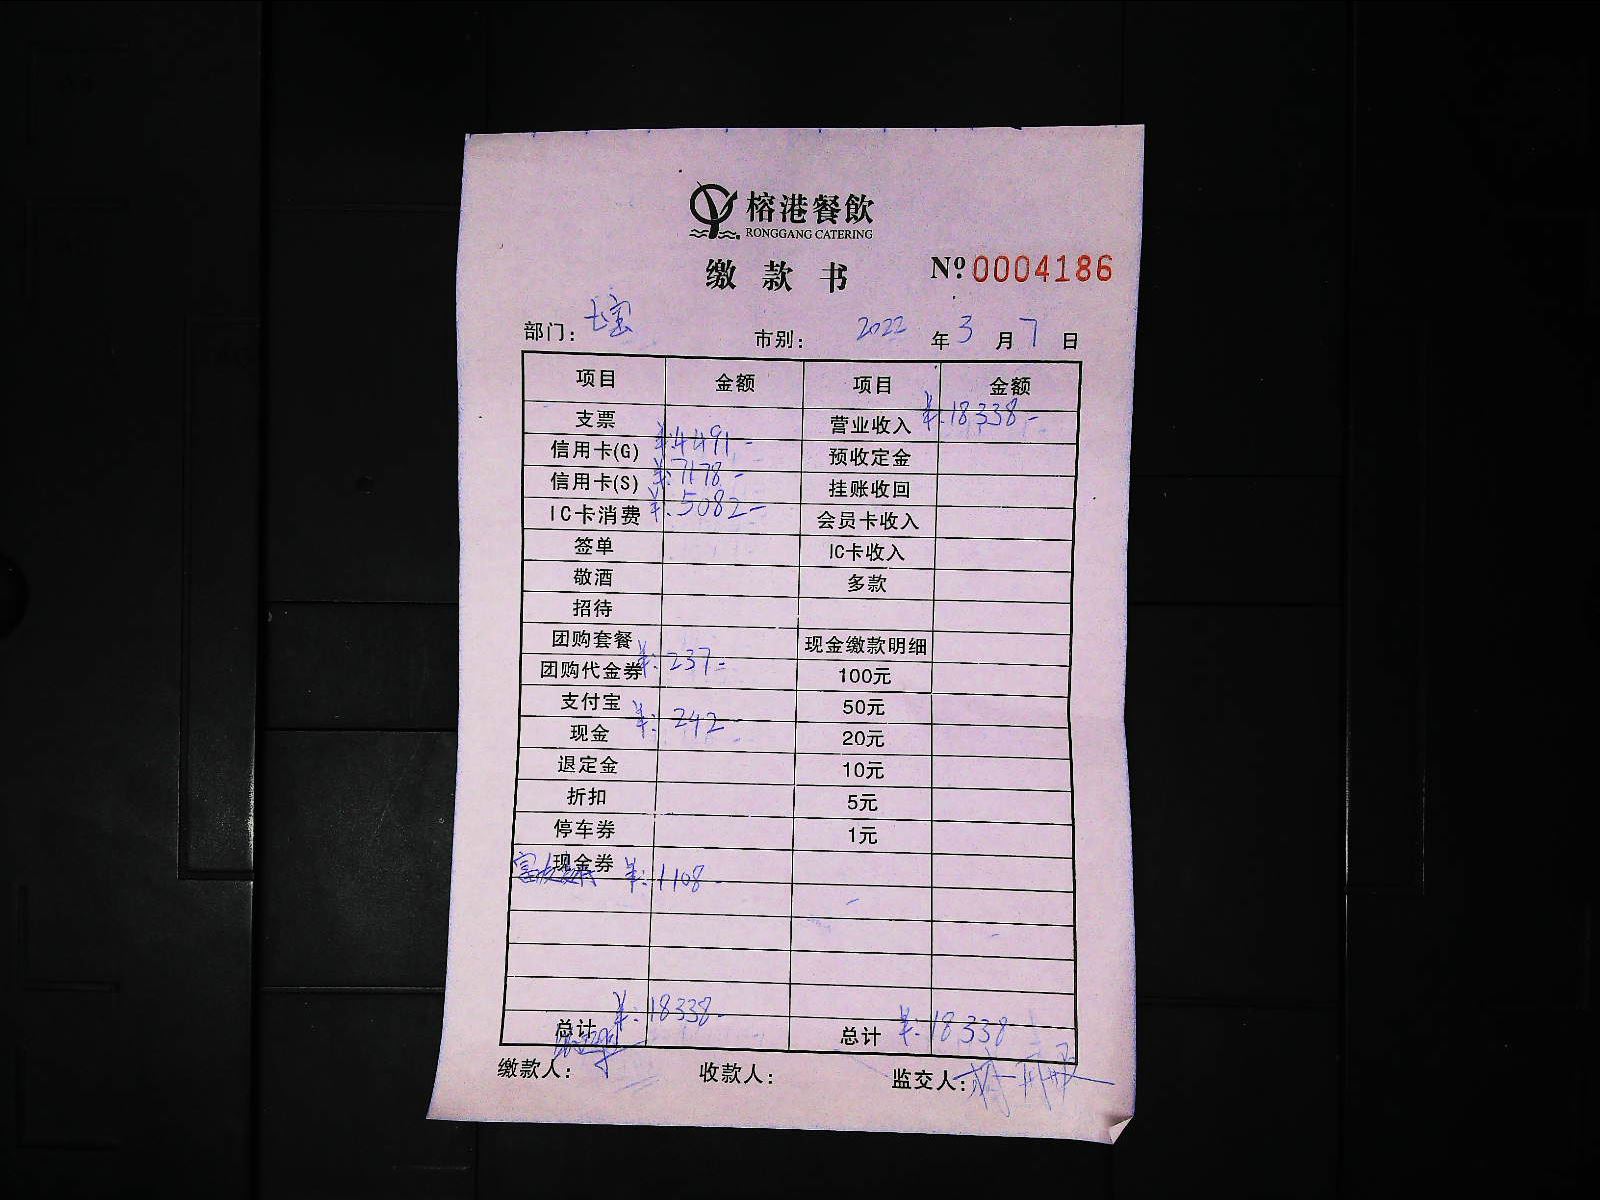 榕港餐飲
RONGGANG CATERING
缴款书 Nº 0004186
部门: 七宝 市别: 2022 年 3 月 7 日
项目 金额 项目 金额
支票 营业收入 ¥:18338-
信用卡(G) ¥:4491- 预收定金
信用卡(S) ¥:7178- 挂账收回
IC卡消费 ¥:5082- 会员卡收入
签单 IC卡收入
敬酒 多款
招待
团购套餐 现金缴款明细
团购代金券 ¥:237- 100元
支付宝 50元
现金 ¥:242- 20元
退定金 10元
折扣 5元
停车券 1元
现金券 ¥:1108-
总计 ¥:18338- 总计 ¥:18338-
缴款人: 收款人: 监交人: